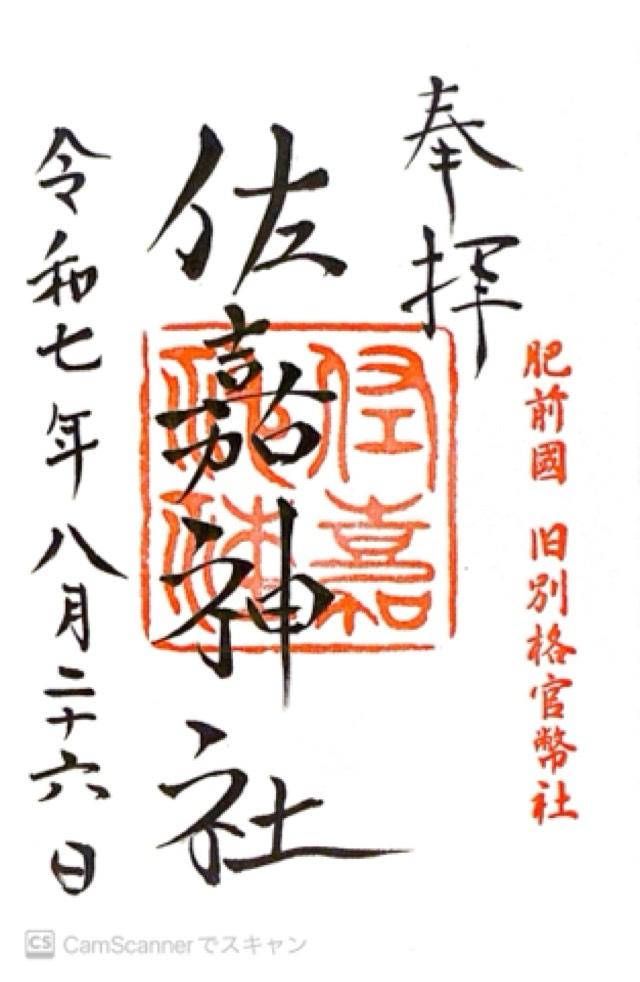 奉拝
肥前國 旧別格官幣社
佐嘉神社
佐嘉神社
令和七年八月二十六日
CS CamScannerでスキャン